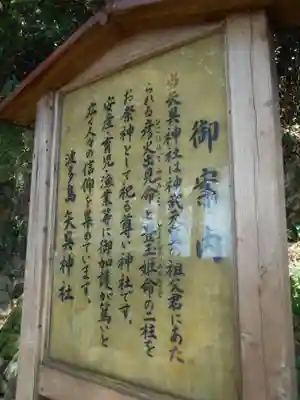 御案内
当矢具神社は神武天皇の祖父君にあた
られる彦火出見命と豊玉姫命の二柱を
お祭神として祀る尊い神社です。
安産・育児・漁業等に御加護が篤いと
広く人々の信仰を集めています。
波多島 矢具神社